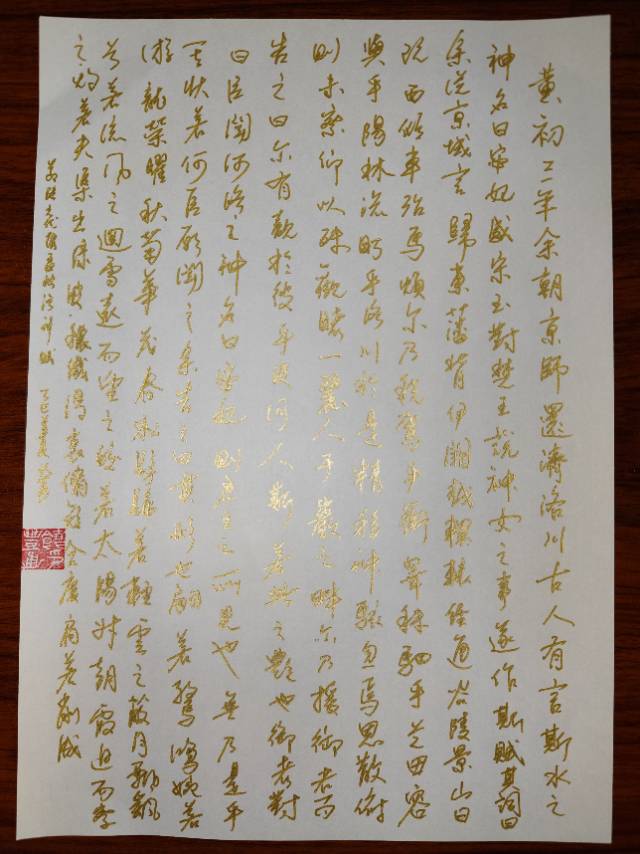 黄初三年余朝京师还济洛川古人有言斯水之
神名曰宓妃感宋玉對楚王說神女之事遂作斯赋其詞曰
余從京城言歸東藩背伊闕越轘轅經通谷陵景山日
既西傾車殆馬煩尔乃税駕乎蘅皋秣駟乎芝田容
與乎陽林流眄乎洛川於是精移神駭忽焉思散俯
則未察仰以殊觀睹一麗人于巖之畔尔乃援御者而
告之曰尔有觀於彼者乎彼何人斯若此之艷也御者對
曰臣聞河洛之神名曰宓妃則君王之所見也無乃是乎
其状若何臣願聞之余告之曰其形也翩若驚鴻婉若
游龍榮曜秋菊華茂春松髣髴若輕雲之蔽月飄飖
兮若流風之迴雪遠而望之皎若太陽升朝霞迫而察
之灼若夫渠出渌波穠纖得衷脩短合度肩若削成